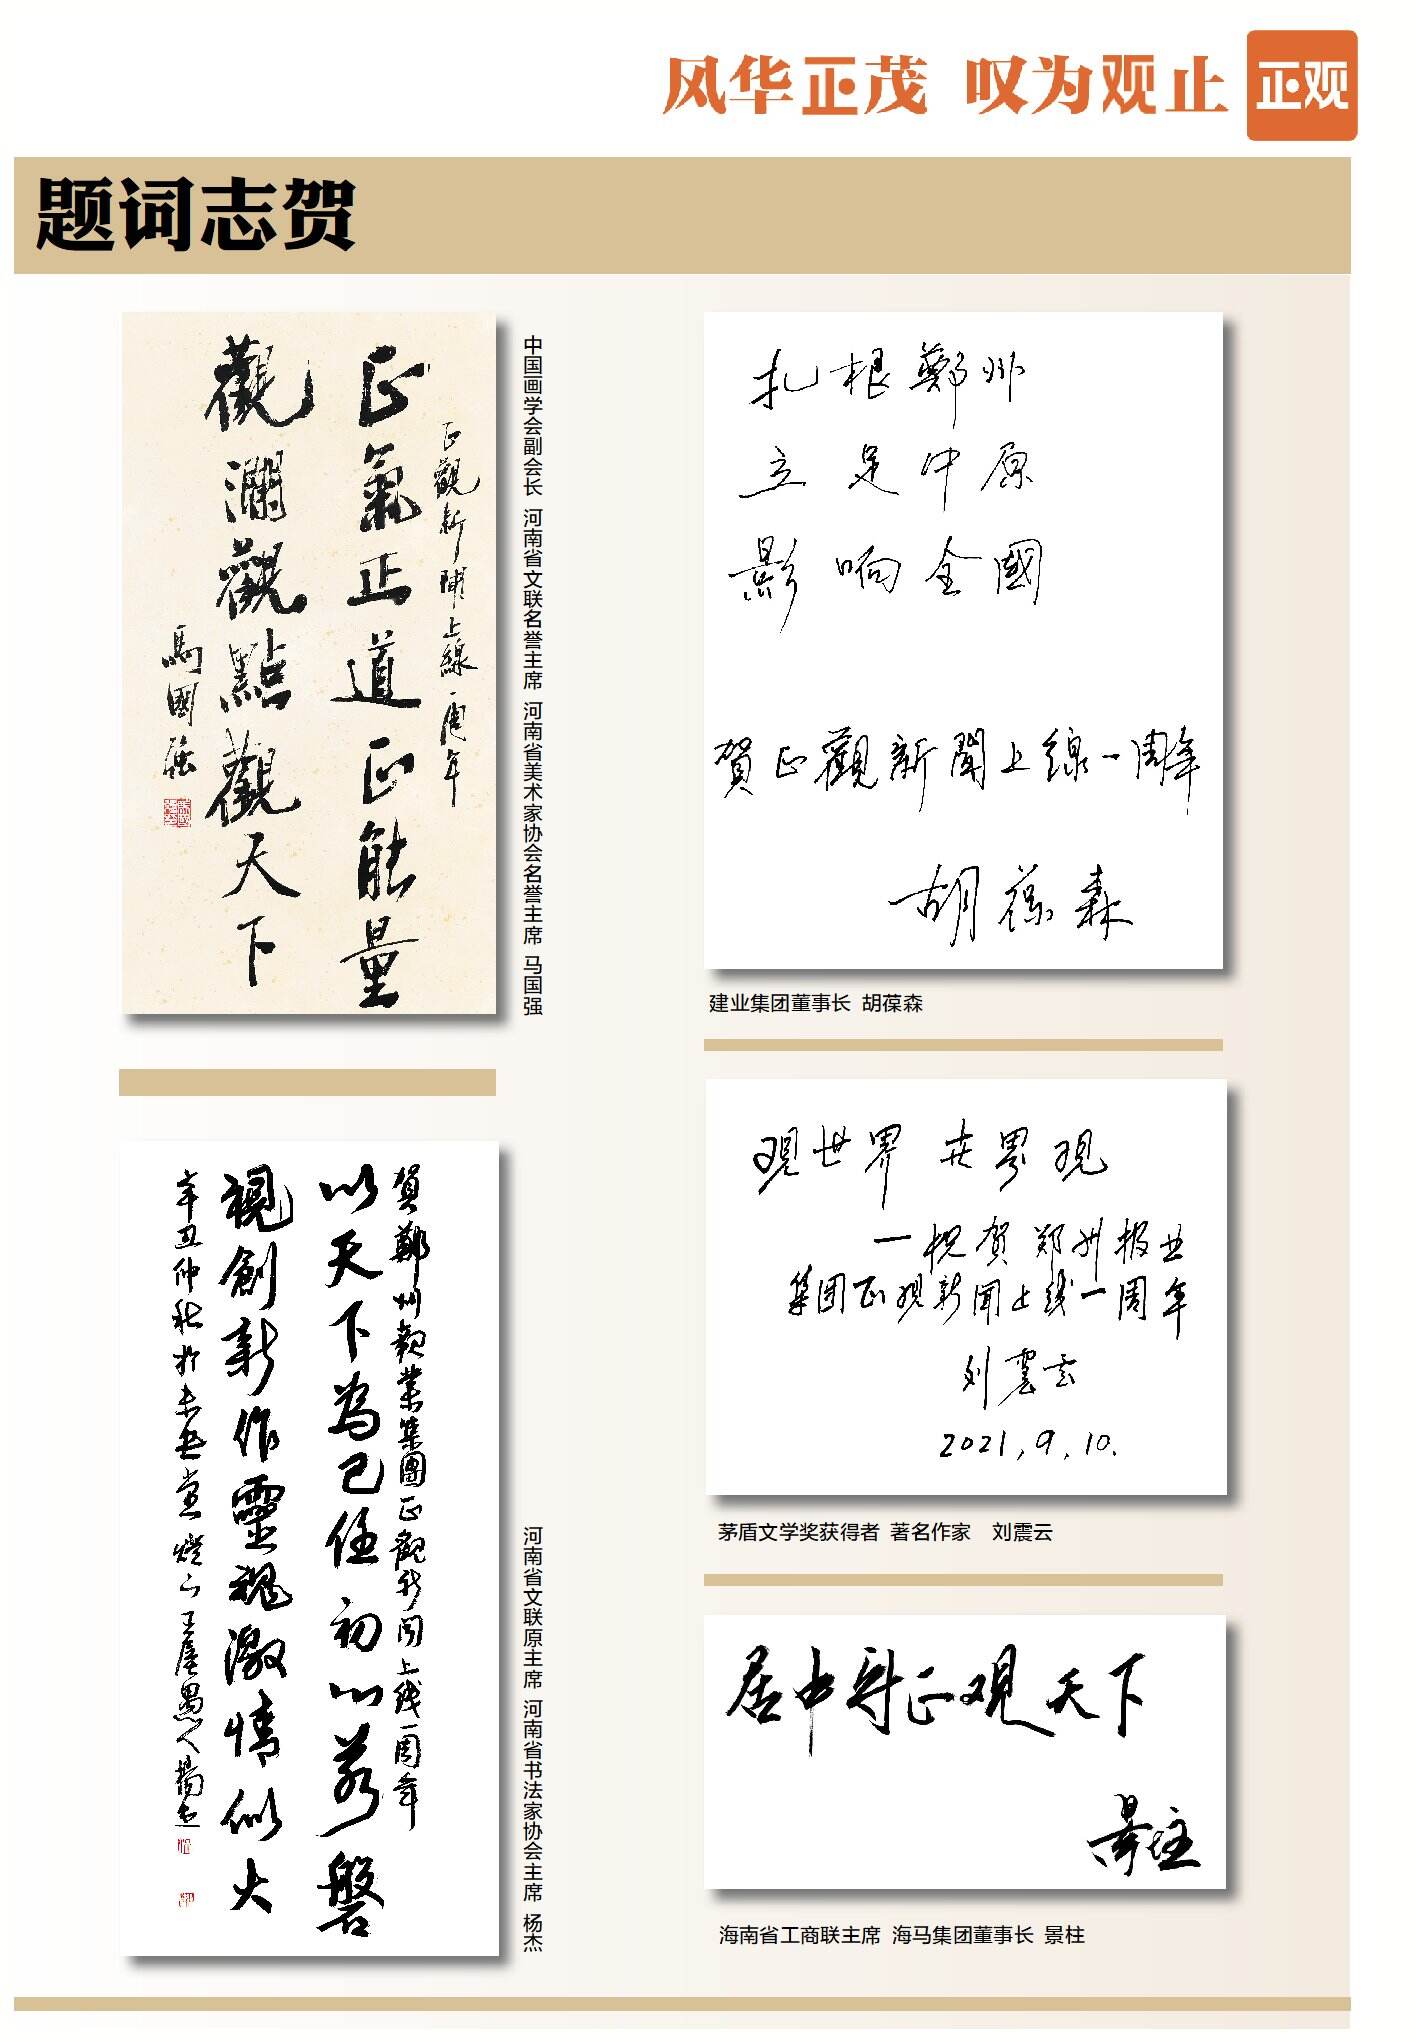 风华正茂 叹为观止
正观
题词志贺
正觀新聞上線一周年
正氣正道正能量
觀瀾觀點觀天下
馬國強
中国画学会副会长 河南省文联名誉主席 河南省美术家协会名誉主席 马国强
賀鄭州報業集團正觀新闻上线一周年
以天下為己任初心若磐
視創新作靈魂激情似火
辛丑仲秋於未无堂燈下王屋愚人楊杰
河南省文联原主席 河南省书法家协会主席 杨杰
扎根鄭州
立足中原
影响全國
賀正觀新聞上線一周年
胡葆森
建业集团董事长 胡葆森
观世界 世界观
—祝贺郑州报业
集团正观新闻上线一周年
刘震云
2021,9,10.
茅盾文学奖获得者 著名作家 刘震云
居中尉正观天下
景柱
海南省工商联主席 海马集团董事长 景柱